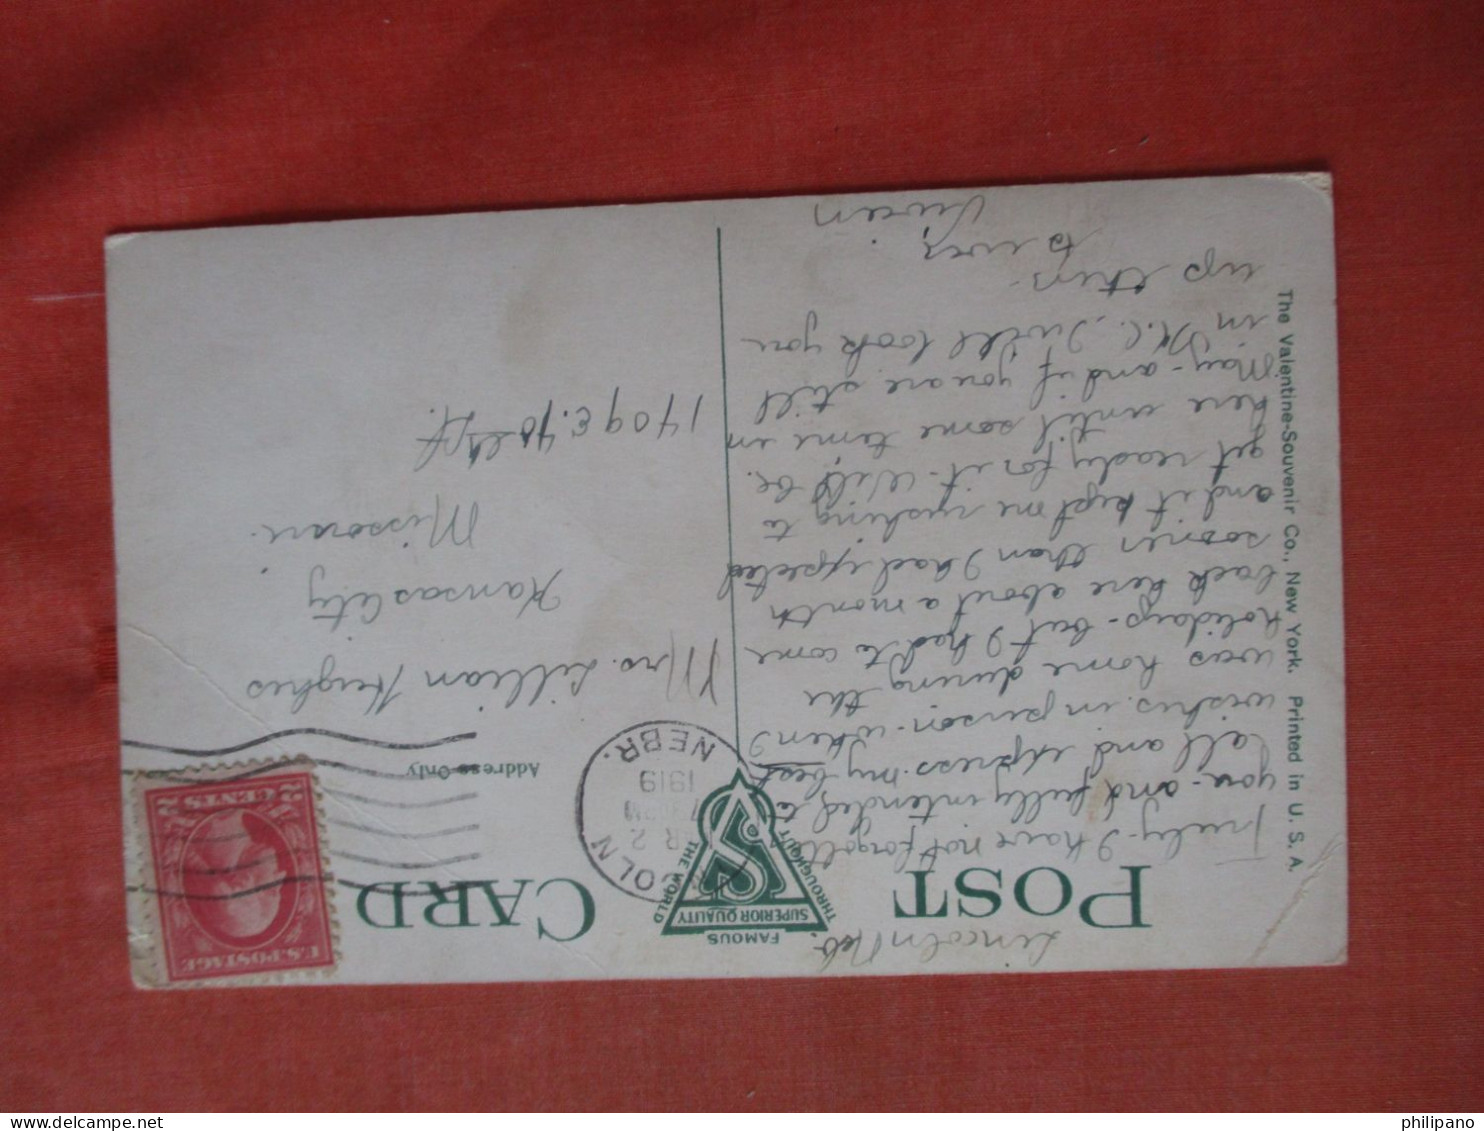 Lincoln Neb.
POST CARD
FAMOUS
SUPERIOR QUALITY
THROUGHOUT
THE WORLD
Truly- I have not forgotten
you- and fully intended to
call and express my best
wishes in person- when I
was home during the
holidays- but I had to come
back here about a month
sooner than I had expected
and it kept me rushing to
get ready for it- Will be
here until some time in
May- and if you are still
in K.C. I will look you
up then.
The Valentine-Souvenir Co., New York. Printed in U. S. A.
U.S. POSTAGE
2 CENTS 2
OLN
2
1919
NEBR.
Address Only
Mrs. Lillian Hughes
Kansas City
Missouri.
1709 E. 40 St.
philipano